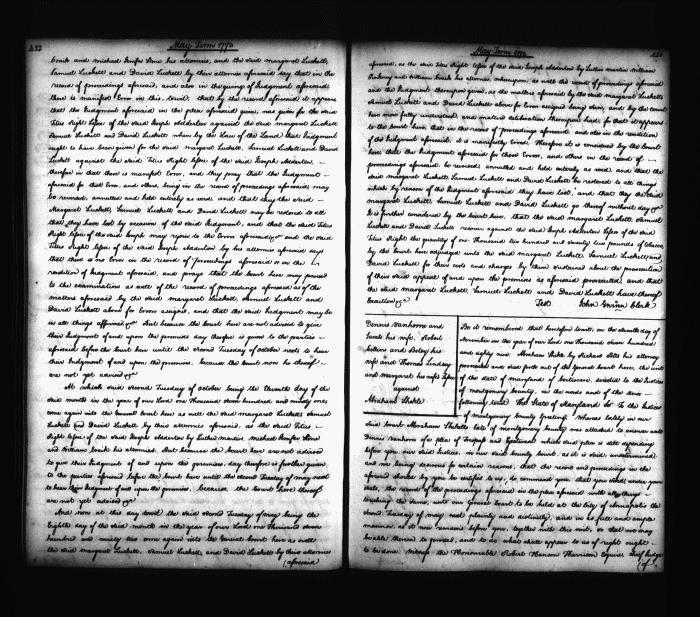 May Term 1792
and the said Margaret Luckett,
Samuel Luckett and David Luckett by their attornies aforesaid say that in the
record of proceedings aforesaid, and also in the giving of Judgment aforesaid
there is manifest Error in this, to wit, that by the record aforesaid it appears
that the Judgment in the plea aforesaid given, was given for the said
against the said Margaret Luckett
Samuel Luckett and David Luckett when by the Law of the Land that Judgment
ought to have been given for the said Margaret Luckett, Samuel Luckett and David
Luckett against the said
therefore in that there is manifest Error, and they pray that the Judgment
aforesaid for that Error, and others being in the record of proceedings aforesaid may
be reversed, annulled and held entirely as void, and that they the said
Margaret Luckett, Samuel Luckett and David Luckett may be restored to all
that they have lost by occasion of the said Judgment, and that the said
may rejoin to the Errors aforesaid &c and the said
by his attornies aforesaid says
that there is no Error in the record of proceedings aforesaid or in the
rendition of Judgment aforesaid, and prays that the Court here may proceed
to the examination as well of the record of proceedings aforesaid as of the
matters aforesaid by the said Margaret Luckett, Samuel Luckett and
David Luckett above for Errors assigned, and that the Judgment may be
in all things affirmed &c But because the Court here are not advised to give
their Judgment of and upon the premises day therefore is given to the parties
aforesaid before the Court here until the second Tuesday of October next to hear
their Judgment of and upon the premises, because the Court now here thereof
are not yet advised &c
At which said second Tuesday of October being the Eleventh day of the
said month in the year of our Lord one Thousand seven hundred and ninety one,
come again into the General Court here as well the said Margaret Luckett Samuel
Luckett and David Luckett by their attornies aforesaid, as the said
by Luther Martin,
and William his attornies. But because the Court here are not advised
to give their Judgment of and upon the premises, day therefore is further given
to the parties aforesaid before the Court here until the second Tuesday of May next
to hear their Judgment of and upon the premises, because the Court here thereof
are not yet advised &c
And now at this day to wit the said second Tuesday of May being the
Eighth day of the said month in the year of our Lord one Thousand seven
hundred and ninety two come again into the General Court here as well
the said Margaret Luckett, Samuel Luckett, and David Luckett by their attornies
(aforesaid
May Term 1792
aforesaid, as the said by Luther Martin William
Pinkney and William his attornies, whereupon, as well the record of proceedings aforesaid
and the Judgment thereupon given, as the matters aforesaid by the said Margaret Luckett
Samuel Luckett and David Luckett above for Error assigned being seen, and by the Court
here more fully understood, and mature deliberation thereupon had, for that it appears
to the Court here, that in the record of proceedings aforesaid, and also in the rendition
of the Judgment aforesaid, it is manifestly Erred. Therefore it is considered by the Court
here, that the Judgment aforesaid for those Errors, and others in the record of
proceedings aforesaid be reversed, annulled and held entirely as void, and that the
said Margaret Luckett, Samuel Luckett and David Luckett be restored to all things
which by reason of the Judgment aforesaid they have lost, and that they the said
Margaret Luckett, Samuel Luckett and David Luckett go thereof without day &c
It is further considered by the Court here, that the said Margaret Luckett, Samuel
Luckett and David Luckett recover against the said
the quantity of one Thousand two hundred and seventy two pounds of tobacco,
by the Court here adjudged unto the said Margaret Luckett, Samuel Luckett, and
David Luckett for their costs and charges by them sustained about the prosecution
of their said appeal of and upon the premises as aforesaid prosecuted, and that
the said Margaret Luckett, Samuel Luckett and David Luckett have thereof
Execution &c
Test. John Gwinn Clerk
Dennis Vanhorn and
Sarah his wife, Robert
and Betsy his
wife and Thomas Lindsey
and Margaret his wife
against
Abraham
Be it remembered that heretofore to wit, on the
November in the year of our Lord one Thousand seven hundred
and eighty nine. Abraham by Richard Potts his attorney
prosecuted and sued forth out of the General Court here, the writ
of the State of Maryland of directed to the Justices
of Montgomery County, in the words and of the tenor
following to wit. The State of Maryland to the Justices
of Montgomery County Greeting. Whereas lately in our
said Court Abraham late of Montgomery County was attached to answer unto
Dennis Vanhorn of a plea of Trespass and Ejectment which said plea is still depending
before you our said Justices, in our said County Court, as it is said, undetermined
and we being desirous for certain reasons, that the record and proceedings in the
plea aforesaid by you be certified to us, do command you, that you send under your
seals, the record of the proceedings aforesaid in the plea aforesaid with all things
touching the same, unto our General Court to be held at the City of Annapolis the
second Tuesday of May next plainly and distinctly, and in as full and ample
manner, as it now remains before you, together with this writ, so that we may
be able thereon to proceed, and to do what shall appear to us of right ought
to be done. Witness the Honourable Robert Hanson Harrison Esquire Chief Judge
(of